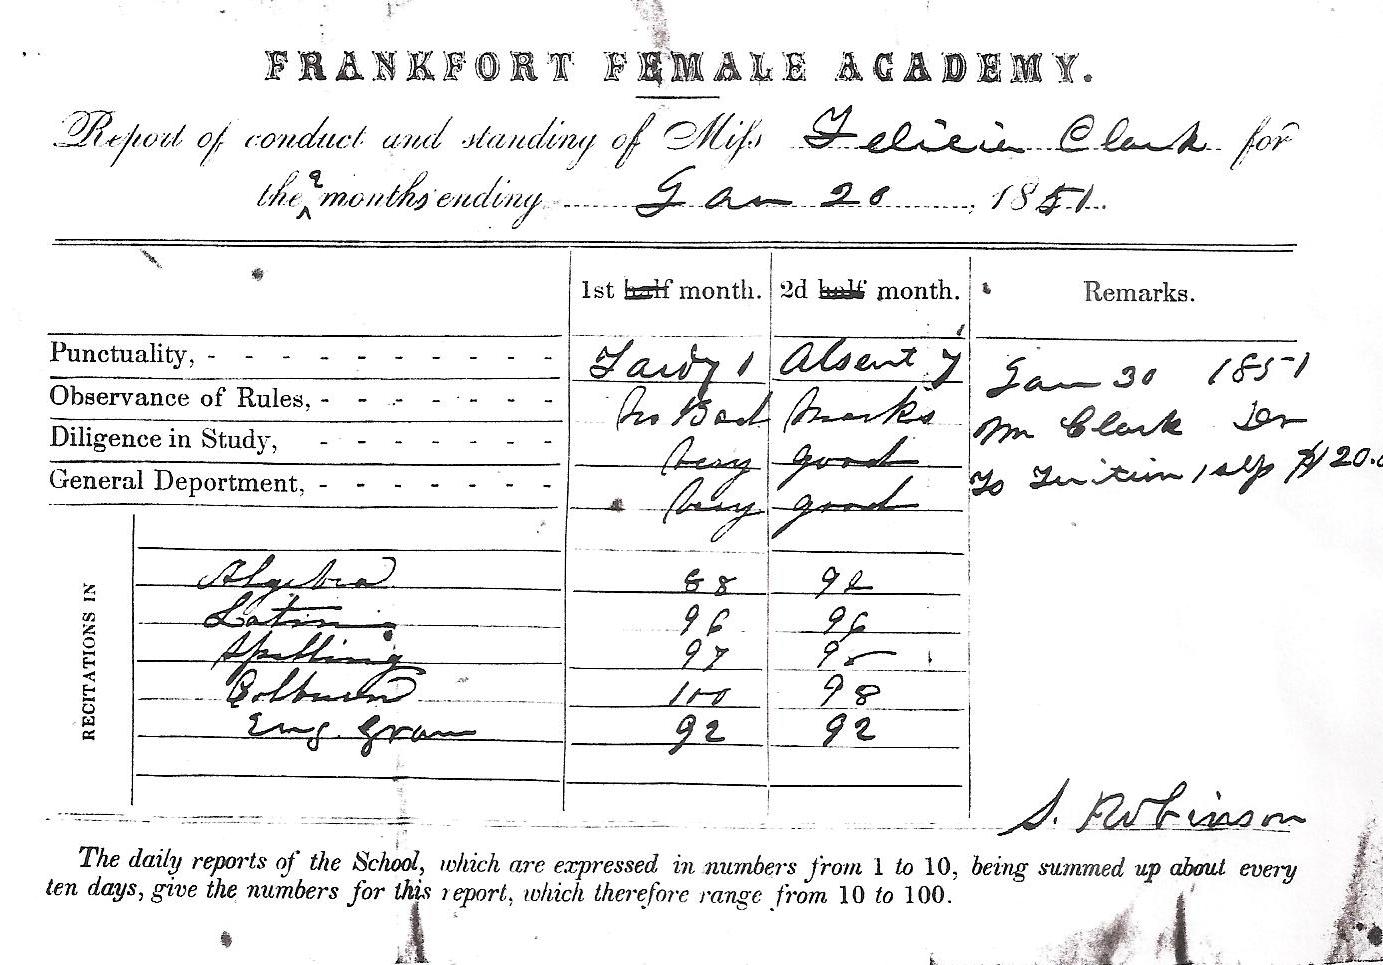 FRANKFORT FEMALE ACADEMY.
Report of conduct and standing of Miss Felicia Clark for
the 2 months ending Jan 20, 1851.
1st half month. 2d half month. Remarks.
Punctuality, Tardy 1 Absent Jan 30 1851
Observance of Rules, No Bad Marks Mr Clark Dr
Diligence in Study, Very good To Tuition 1 $20.
General Deportment, Very good
RECITATIONS IN
Algebra 88
Latin 96 96
Spelling 97 95
Colburn 100 98
Eng. Gram 92 92
S. Robinson
The daily reports of the School, which are expressed in numbers from 1 to 10, being summed up about every
ten days, give the numbers for this report, which therefore range from 10 to 100.